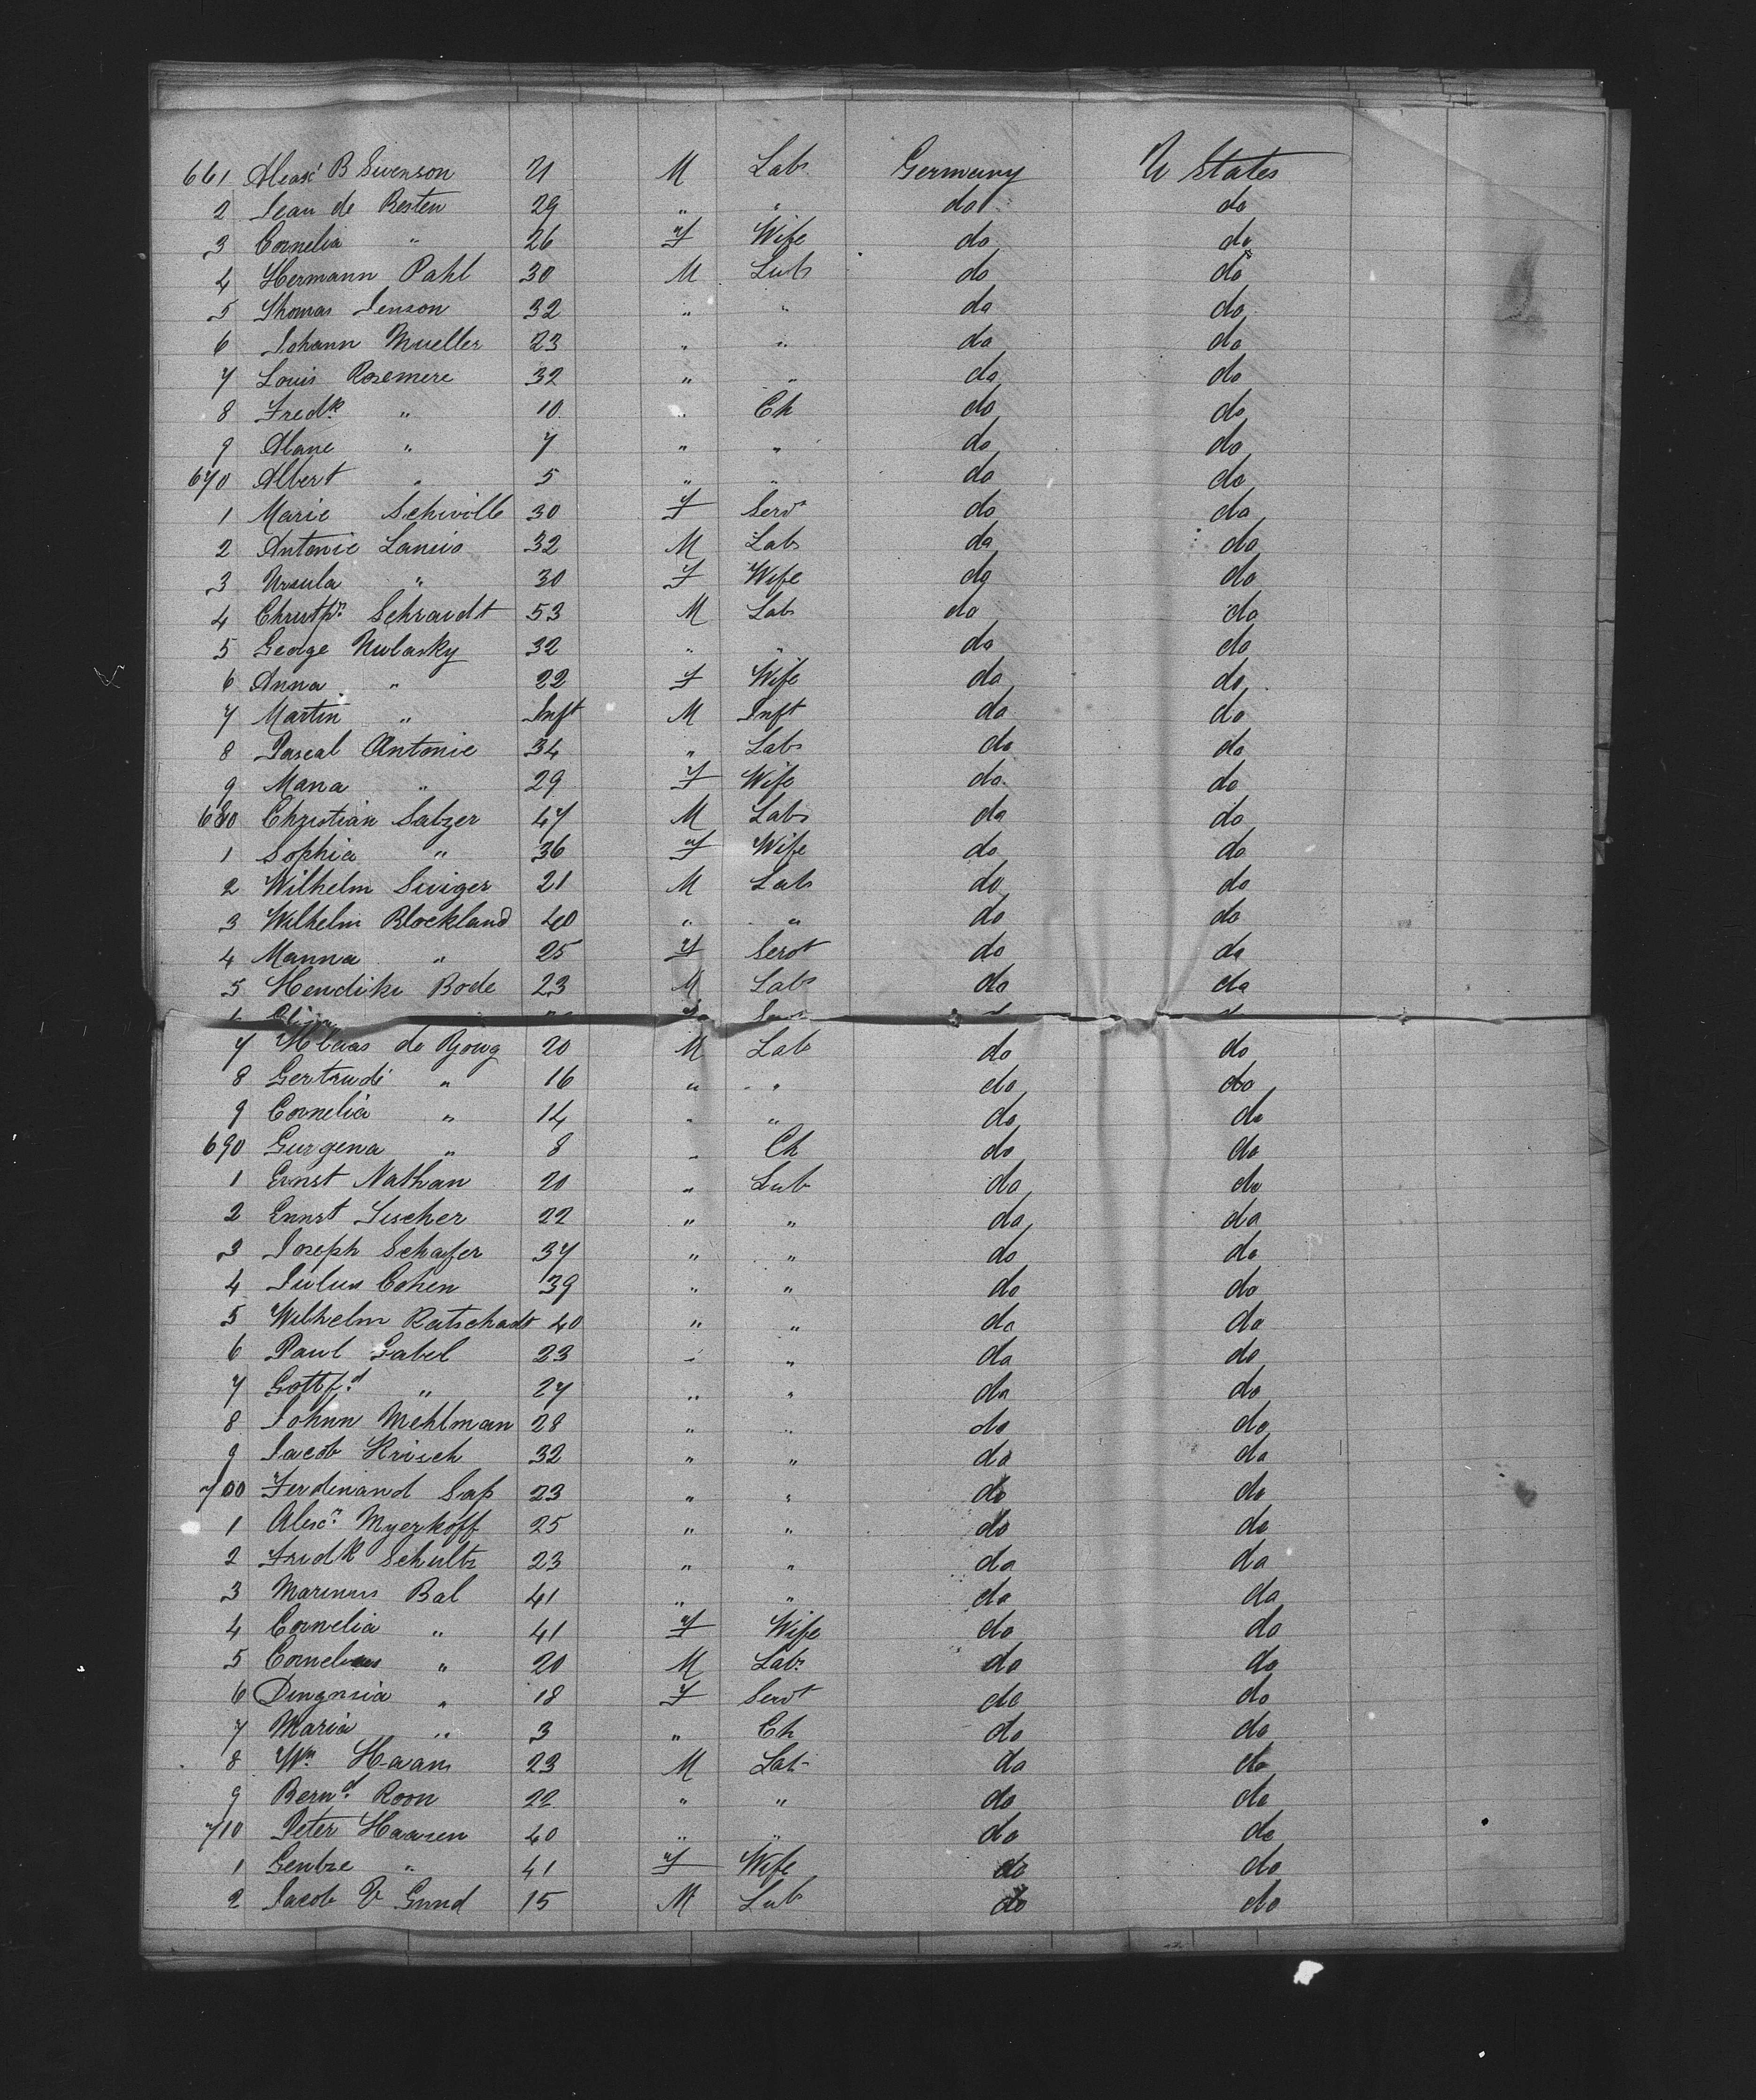 661 Alexr B Swenson 21 M Labr Germany U States
2 Jean de Besten 29 " " do do
3 Cornelia " 26 F Wife do do
4 Hermann Pahl 30 M Lab do do
5 Thomas Jenson 32 " " do do
6 Johann Mueller 23 " " do do
7 Louis Rosemere 32 " " do do
8 Fredk " 10 " Ch do do
9 Alane " 7 " " do do
670 Albert " 5 " " do do
1 Marie Schwille 30 F Servt do do
2 Antonie Lanius 32 M Labr do do
3 Ursula " 30 F Wife do do
4 Christpr Schraidt 53 M Labr do do
5 George Nulasky 32 " " do do
6 Anna " 22 F Wife do do
7 Martin " Inft M Inft do do
8 Pascal Antonie 34 " Labr do do
9 Mana " 29 F Wife do do
680 Christian Salzer 47 M Labr do do
1 Sophia " 36 F Wife do do
2 Wilhelm Swiger 21 M Lab do do
3 Wilhelm Blockland 40 " " do do
4 Manna " 25 F Servt do do
5 Hendike Bode 23 M Labr do do
7 Klaas de Jong 20 M Lab do do
8 Gertrudi " 16 " " do do
9 Cornelia " 14 " " do do
690 Gurgena " 8 " Ch do do
1 Ernst Nathan 20 " Lab do do
2 Ernst Fischer 22 " " do do
3 Joseph Schafer 37 " " do do
4 Julius Cohen 39 " " do do
5 Wilhelm Ratschads 40 " " do do
6 Paul Gabel 23 " " do do
7 Gottfd " 27 " " do do
8 Johnn Mehlman 28 " " do do
9 Jacob Krisch 32 " " do do
700 Ferdinand Sap 23 " " do do
1 Alexr Myerkoff 25 " " do do
2 Fridk Schultz 23 " " do do
3 Marinus Bal 41 " " do do
4 Cornelia " 41 F Wife do do
5 Cornelius " 20 M Labr do do
6 Dingnsia " 18 F Servt do do
7 Maria " 3 " Ch do do
8 Wm Haans 23 M Lab do do
9 Bernd Roon 22 " " do do
710 Peter Haasen 40 " " do do
1 Gentze " 41 F Wife do do
2 Jacob V Grund 15 M Lab do do